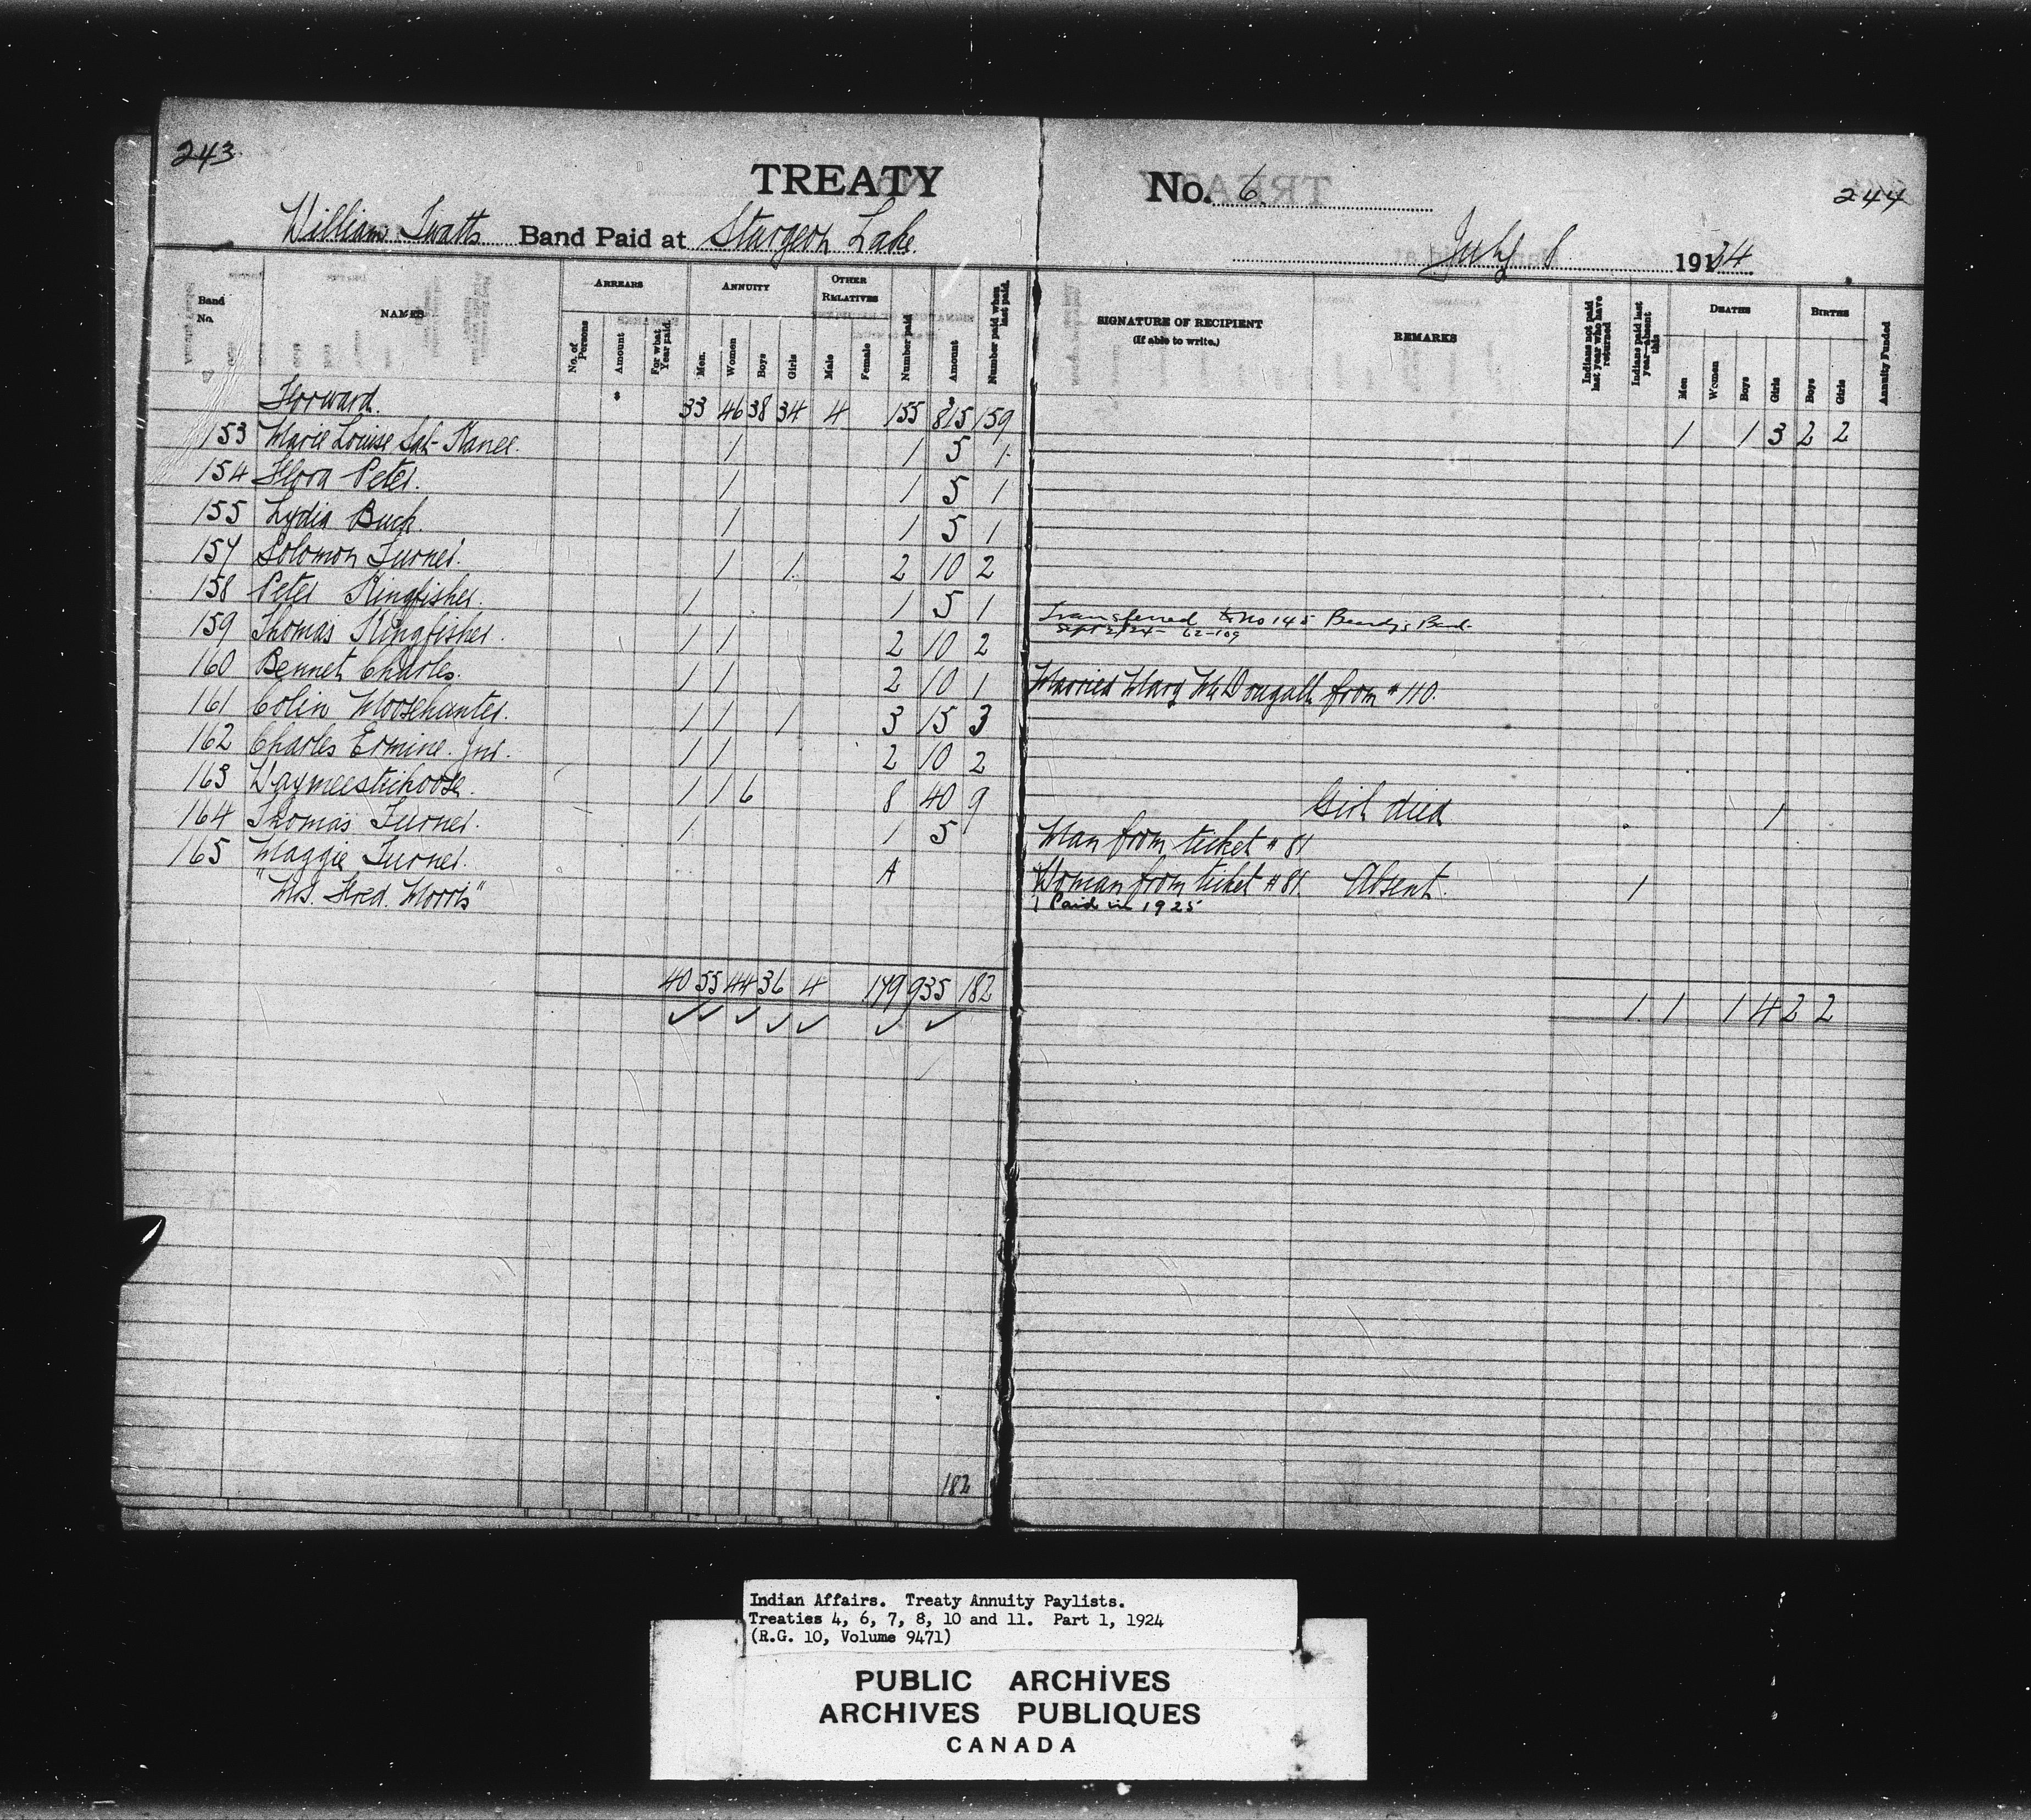 243
TREATY No. 6.
244
William Twatts Band Paid at Sturgeon Lake.
July 8 1924
Band No.
NAMES
ARREARS
No. of Persons
Amount
For what Year paid.
ANNUITY
Men.
Women
Boys
Girls
OTHER RELATIVES
Male
Female
Number paid
Amount
Number paid when last paid.
SIGNATURE OF RECIPIENT
(If able to write.)
REMARKS
Indians not paid last year who have returned
Indians paid last year—absent this
DEATHS
Men
Women
Boys
Girls
BIRTHS
Boys
Girls
Annuity Funded
Forward. 33 46 38 34 4 155 815 159 1 1 3 2 2
153 Marie Louise Kanee. 1 1 5 1
154 Flora Peter. 1 1 5 1
155 Lydia Buck. 1 1 5 1
157 Solomon Turner. 1 1 2 10 2
158 Peter Kingfisher. 1 1 5 1 Transferred to No 145 Beardy's Band.
Sept 2/24 62-109
159 Thomas Kingfisher. 1 1 2 10 2
160 Bennet Charles. 1 1 2 10 1 Married Mary McDougall from #110.
161 Colin Moosehunter. 1 1 1 3 15 3
162 Charles Ermine. Jnr. 1 1 2 10 2
163 Waymeestichoose. 1 1 6 8 40 9 Girl died 1
164 Thomas Turner. 1 1 5 Man from ticket #81
165 Maggie Turner. A Woman from ticket #81. Absent. 1
"Mrs. Fred. Morris" 1 Paid in 1925
40 55 44 36 4 179 935 182 1 1 1 4 2 2
182
Indian Affairs. Treaty Annuity Paylists.
Treaties 4, 6, 7, 8, 10 and 11. Part 1, 1924
(R.G. 10, Volume 9471)
PUBLIC ARCHIVES
ARCHIVES PUBLIQUES
CANADA